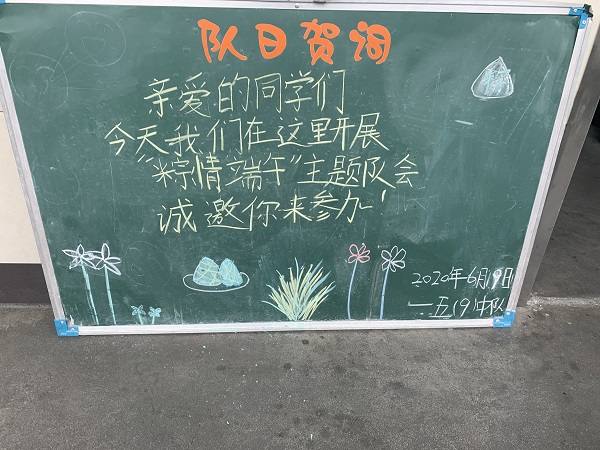 队日贺词
亲爱的同学们
今天我们在这里开展
“粽情端午”主题队会
诚邀你来参加!
2020年6月19日
一五(9)中队